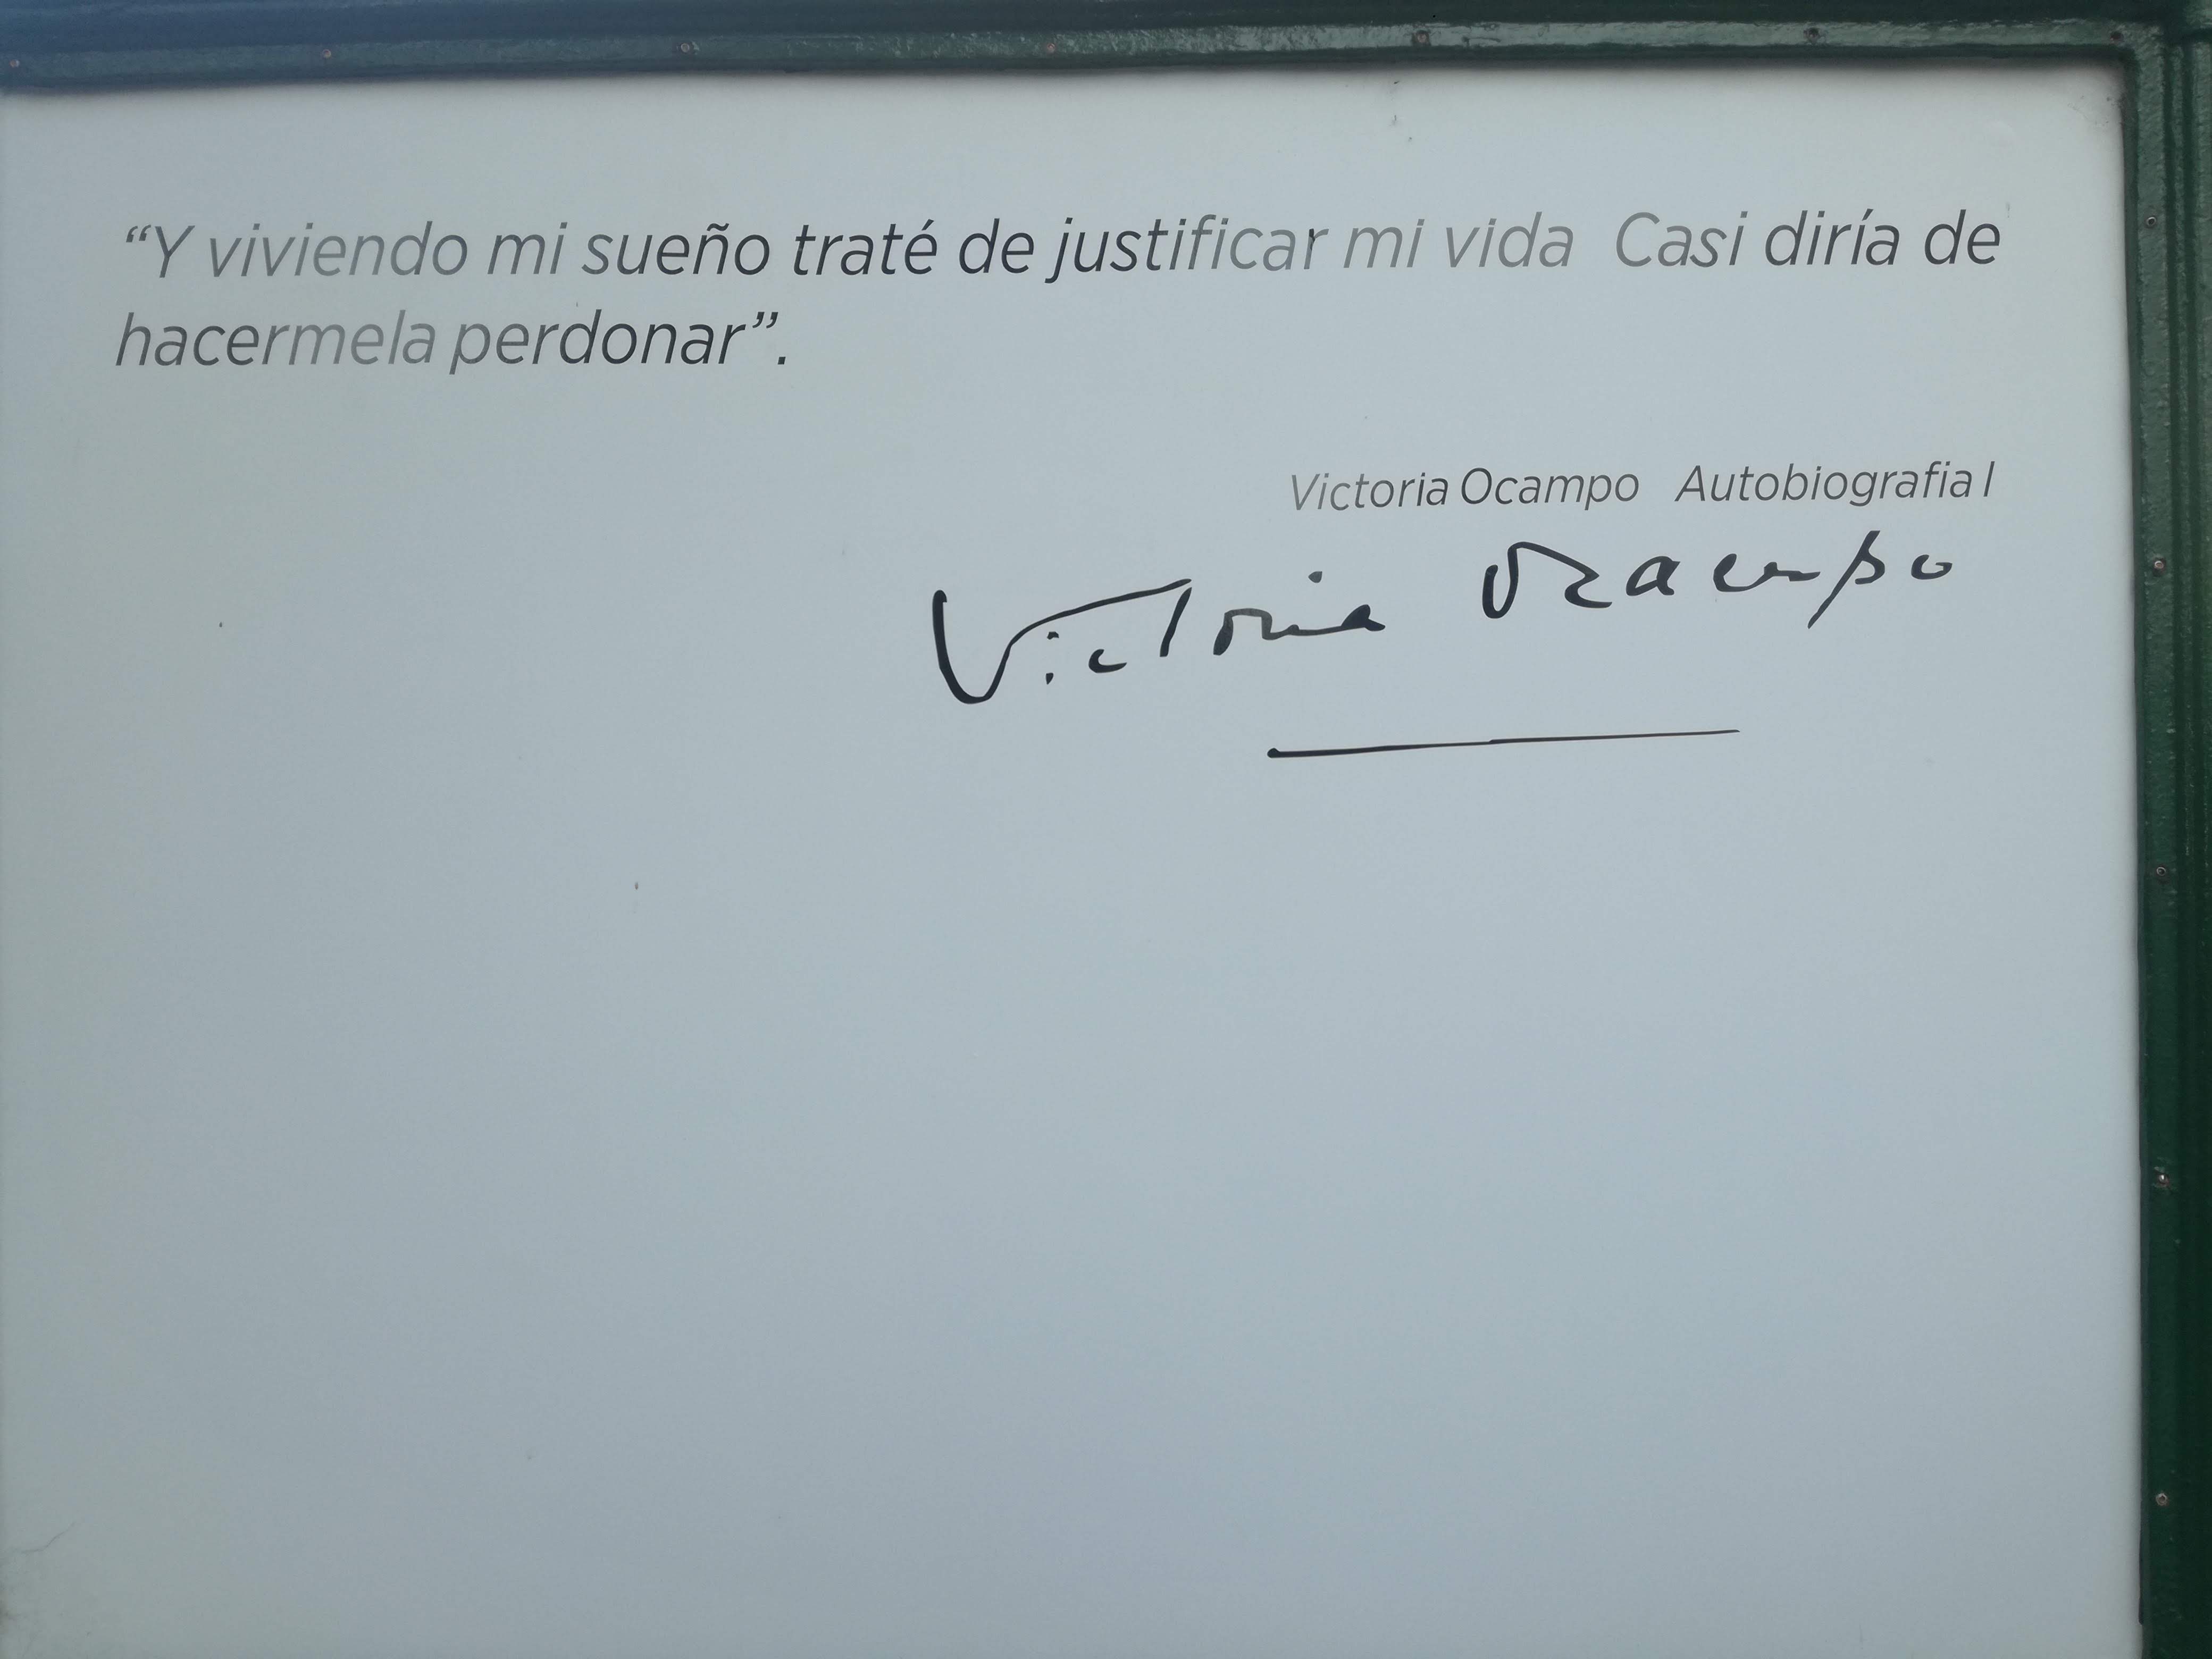 “Y viviendo mi sueño traté de justificar mi vida Casi diría de
hacermela perdonar”.
Victoria Ocampo Autobiografia I
Victoria Ocampo